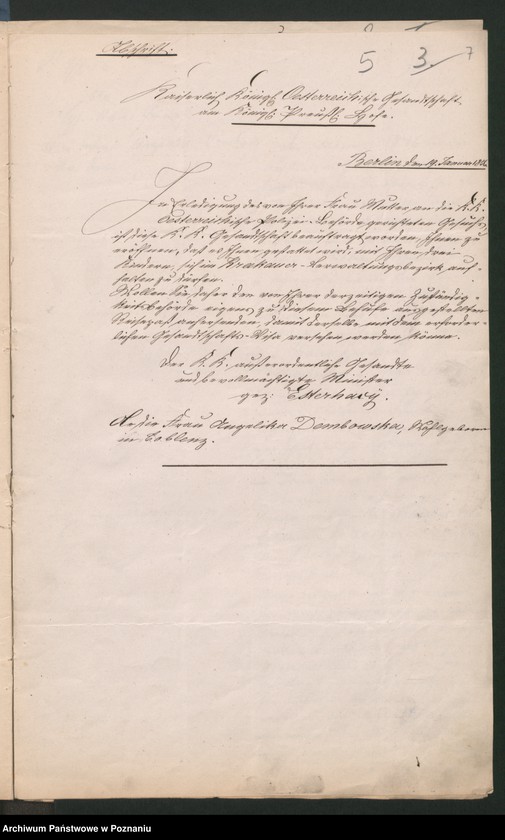 Abschrift.
5 3 7
Kaiserlich Königl. Oesterreichische Gesandtschaft
am Königl. Preuß. Hofe.
Berlin den 19. Januar
In Erledigung des von Ihrer Frau Mutter an die K. K.
Oesterreichische Polizei-Behörde gerichteten Gesuchs
ist diese K. K. Gesandtschaft beauftragt worden, Ihnen zu
eröffnen, daß es Ihnen gestattet wird, mit Ihren drei
Kindern, sich im Krakauer-Verwaltungsbezirk auf-
halten zu dürfen.
Wollen Sie daher den von Ihrer derzeitigen Zuständig-
keitsbehörde eigens zu diesem Behufe ausgestellten
Reisepaß anhersenden, damit derselbe mit dem erforder-
lichen Gesandtschafts-Visa versehen werden könne.
Der K. K. außerordentliche Gesandte
und bevollmächtigte Minister
gez: Esterhazy.
An die Frau Angelika Dembowska, Wohlgeboren
in Coblenz.
Archiwum Państwowe w Poznaniu